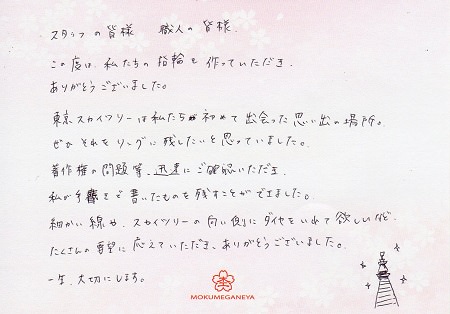 スタッフの皆様　職人の皆様
この度は、私たちの指輪を作っていただき、
ありがとうございました。
東京スカイツリーは私たちが初めて出会った思い出の場所。
ぜひそれをリングに残したいと思っていました。
著作権の問題等、迅速にご確認いただき、
私が手書きで書いたものを残すことができました。
細かい線や、スカイツリーの向い側にダイヤをいれて欲しいなど、
たくさんの要望に応えていただき、ありがとうございました。
一生、大切にします。
MOKUMEGANEYA